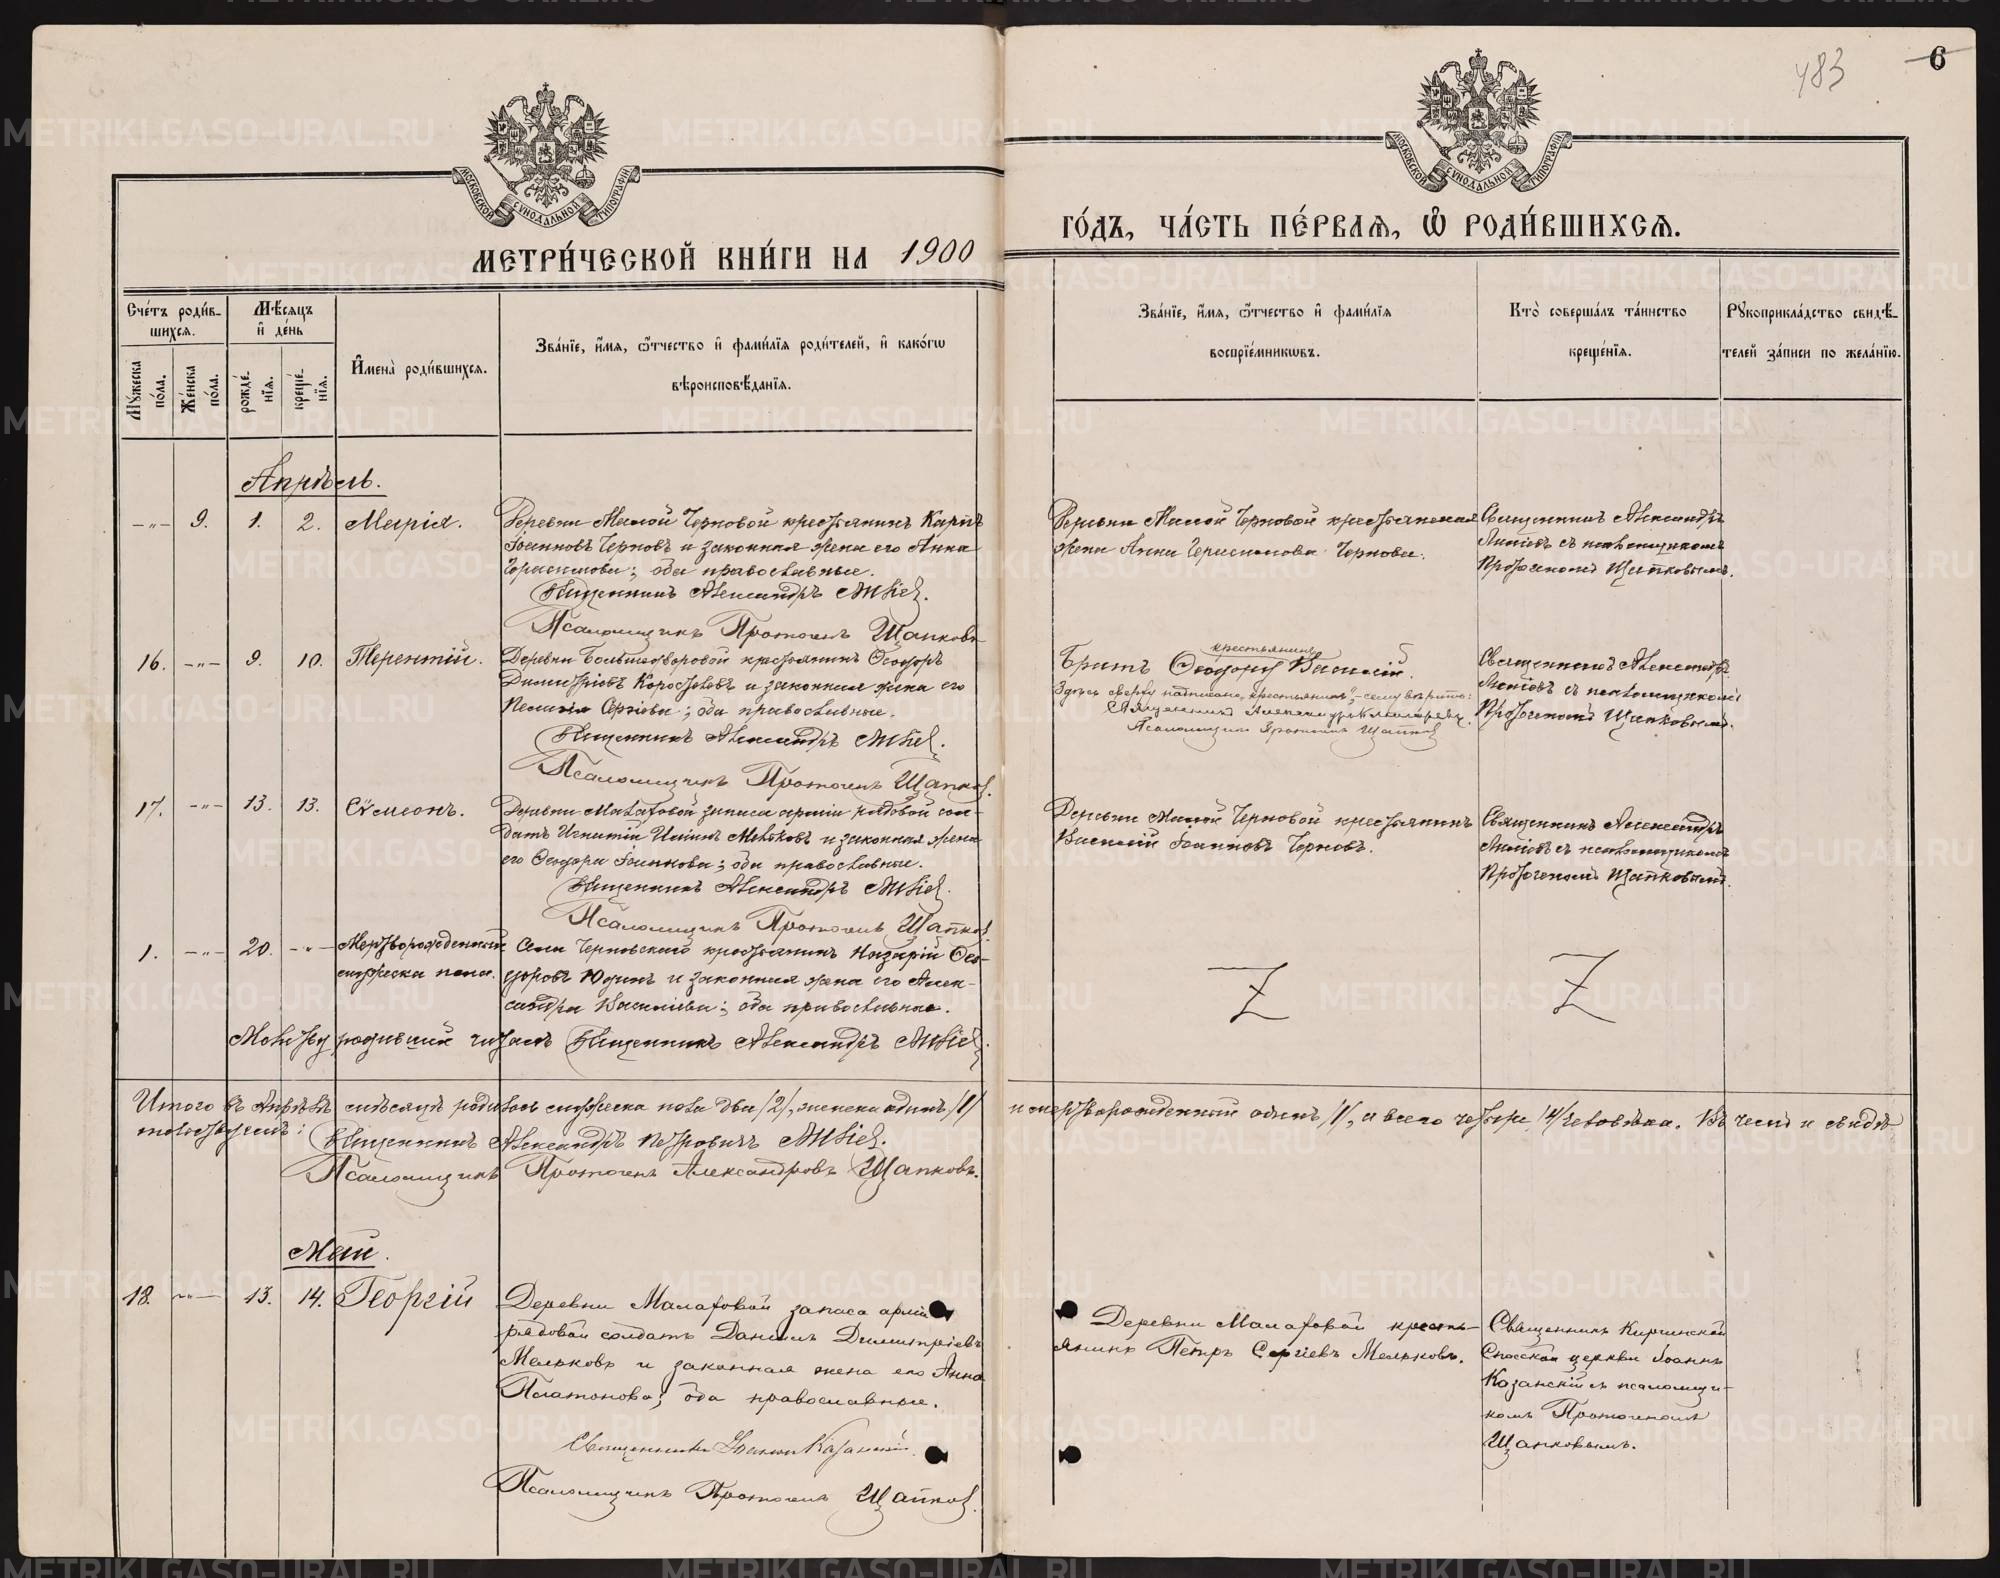 483
6
МОСКОВСКОЙ СУНОДАЛЬНОЙ ТИПОГРАФІИ
МОСКОВСКОЙ СУНОДАЛЬНОЙ ТИПОГРАФІИ
МЕТРИ́ЧЕСКОЙ КНИ́ГИ НА 1900
ГО́ДЪ, ЧА́СТЬ ПЕ́РВАѦ, Ѡ҆ РОДИ́ВШИХСѦ.
Сче́тъ роди́в-
шихся.
Мѣ́сяцъ
и҆ де́нь
Мꙋ́жеска
по́ла.
Же́нска
по́ла.
рожде́-
нїя.
креще́-
нїя.
И҆мена̀ роди́вшихся.
Зва́нїе, и҆́мя, ѻ҆́тчество и҆ фами́лїя роди́телей, и҆ како́гѡ
вѣроисповѣ́данїя.
Зва́нїе, и҆́мя, ѻ҆́тчество и҆ фами́лїя
воспрїе́мникѡвъ.
Кто̀ соверша́лъ та́инство
креще́нїя.
Рꙋкоприкла́дство свидѣ́-
телей за́писи по жела́нїю.
Апрѣль.
—„— 9. 1. 2. Марія.
Деревни Малой Черновой крестьянинъ Карпъ
Іоанновъ Черновъ и законная жена его Анна
Герасимова; оба православные.
Священникъ Александръ
Псаломщикъ Протогенъ Щапковъ
Деревни Малой Черновой крестьянская
жена Анна Герасимова Чернова.
Священникъ Александръ
съ псаломщикомъ
Протогеномъ Щапковымъ.
16. —„— 9. 10. Терентій.
Деревни крестьянинъ Ѳеодоръ
Димитріевъ и законная жена его
Пелагія Сергіева; оба православные.
Священникъ Александръ
Псаломщикъ Протогенъ Щапковъ.
крестьянинъ
Братъ Ѳеодору Василій.
Здѣсь сверху надписано „крестьянинъ“, – сему вѣрить:
Священникъ Александръ
Псаломщикъ Протогенъ Щапковъ
Священникъ Александръ
съ псаломщикомъ
Протогеномъ Щапковымъ.
17. —„— 13. 13. Сѵмеонъ.
Деревни Малафовой запаса арміи рядовой сол-
датъ Игнатій Мельковъ и законная жена
его Ѳеодора Іоаннова; оба православные.
Священникъ Александръ
Псаломщикъ Протогенъ Щапковъ.
Деревни Малой Черновой крестьянинъ
Василій Іоанновъ Черновъ.
Священникъ Александръ
съ псаломщикомъ
Протогеномъ Щапковымъ.
1. —„— 20. —„— Мертворожденный
мужеска пола.
Села Черновскаго крестьянинъ Назарій Ѳео-
доровъ Юдинъ и законная жена его Алек-
сандра Василіева; оба православные.
Z Z
Молитву родившей читалъ Священникъ Александръ
Итого въ Апрѣлѣ мѣсяцѣ родилось мужеска пола два /2/, женска одинъ /1/ и мертворожденный одинъ /1/, а всего четыре /4/ человѣка. Въ чемъ и свидѣ-
тельствуемъ: Священникъ Александръ Петровичъ
Псаломщикъ Протогенъ Александровъ Щапковъ.
Май.
18. —„— 13. 14. Георгій
Деревни Малафовой запаса арміи
рядовой солдатъ Даніилъ Димитріевъ
Мельковъ и законная жена его Анна
Платонова; оба православные.
Священникъ Іоаннъ Казанскій.
Псаломщикъ Протогенъ Щапковъ.
Деревни Малафовой кресть-
янинъ Петръ Сергіевъ Мельковъ.
Священникъ Киргинской
Спасской церкви Іоаннъ
Казанскій съ псаломщи-
комъ Протогеномъ
Щапковымъ.
METRIKI.GASO-URAL.RU